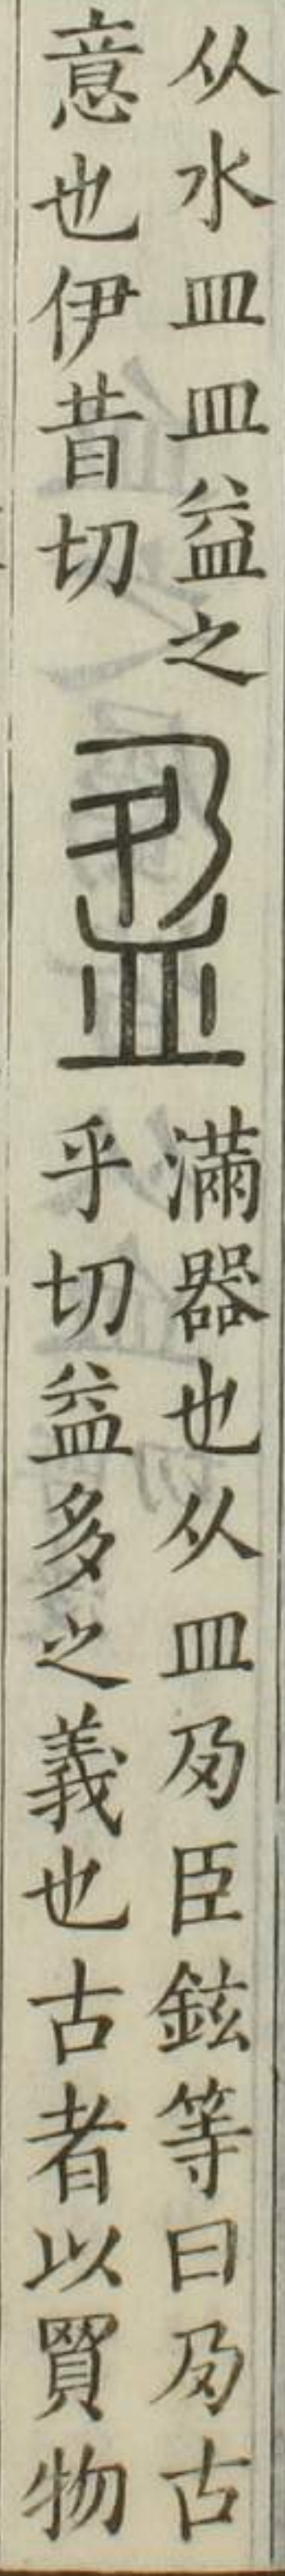 从水皿皿益之
意也伊昔切
盈
滿器也从皿夃臣鉉等曰夃古
乎切益多之義也古者以買物